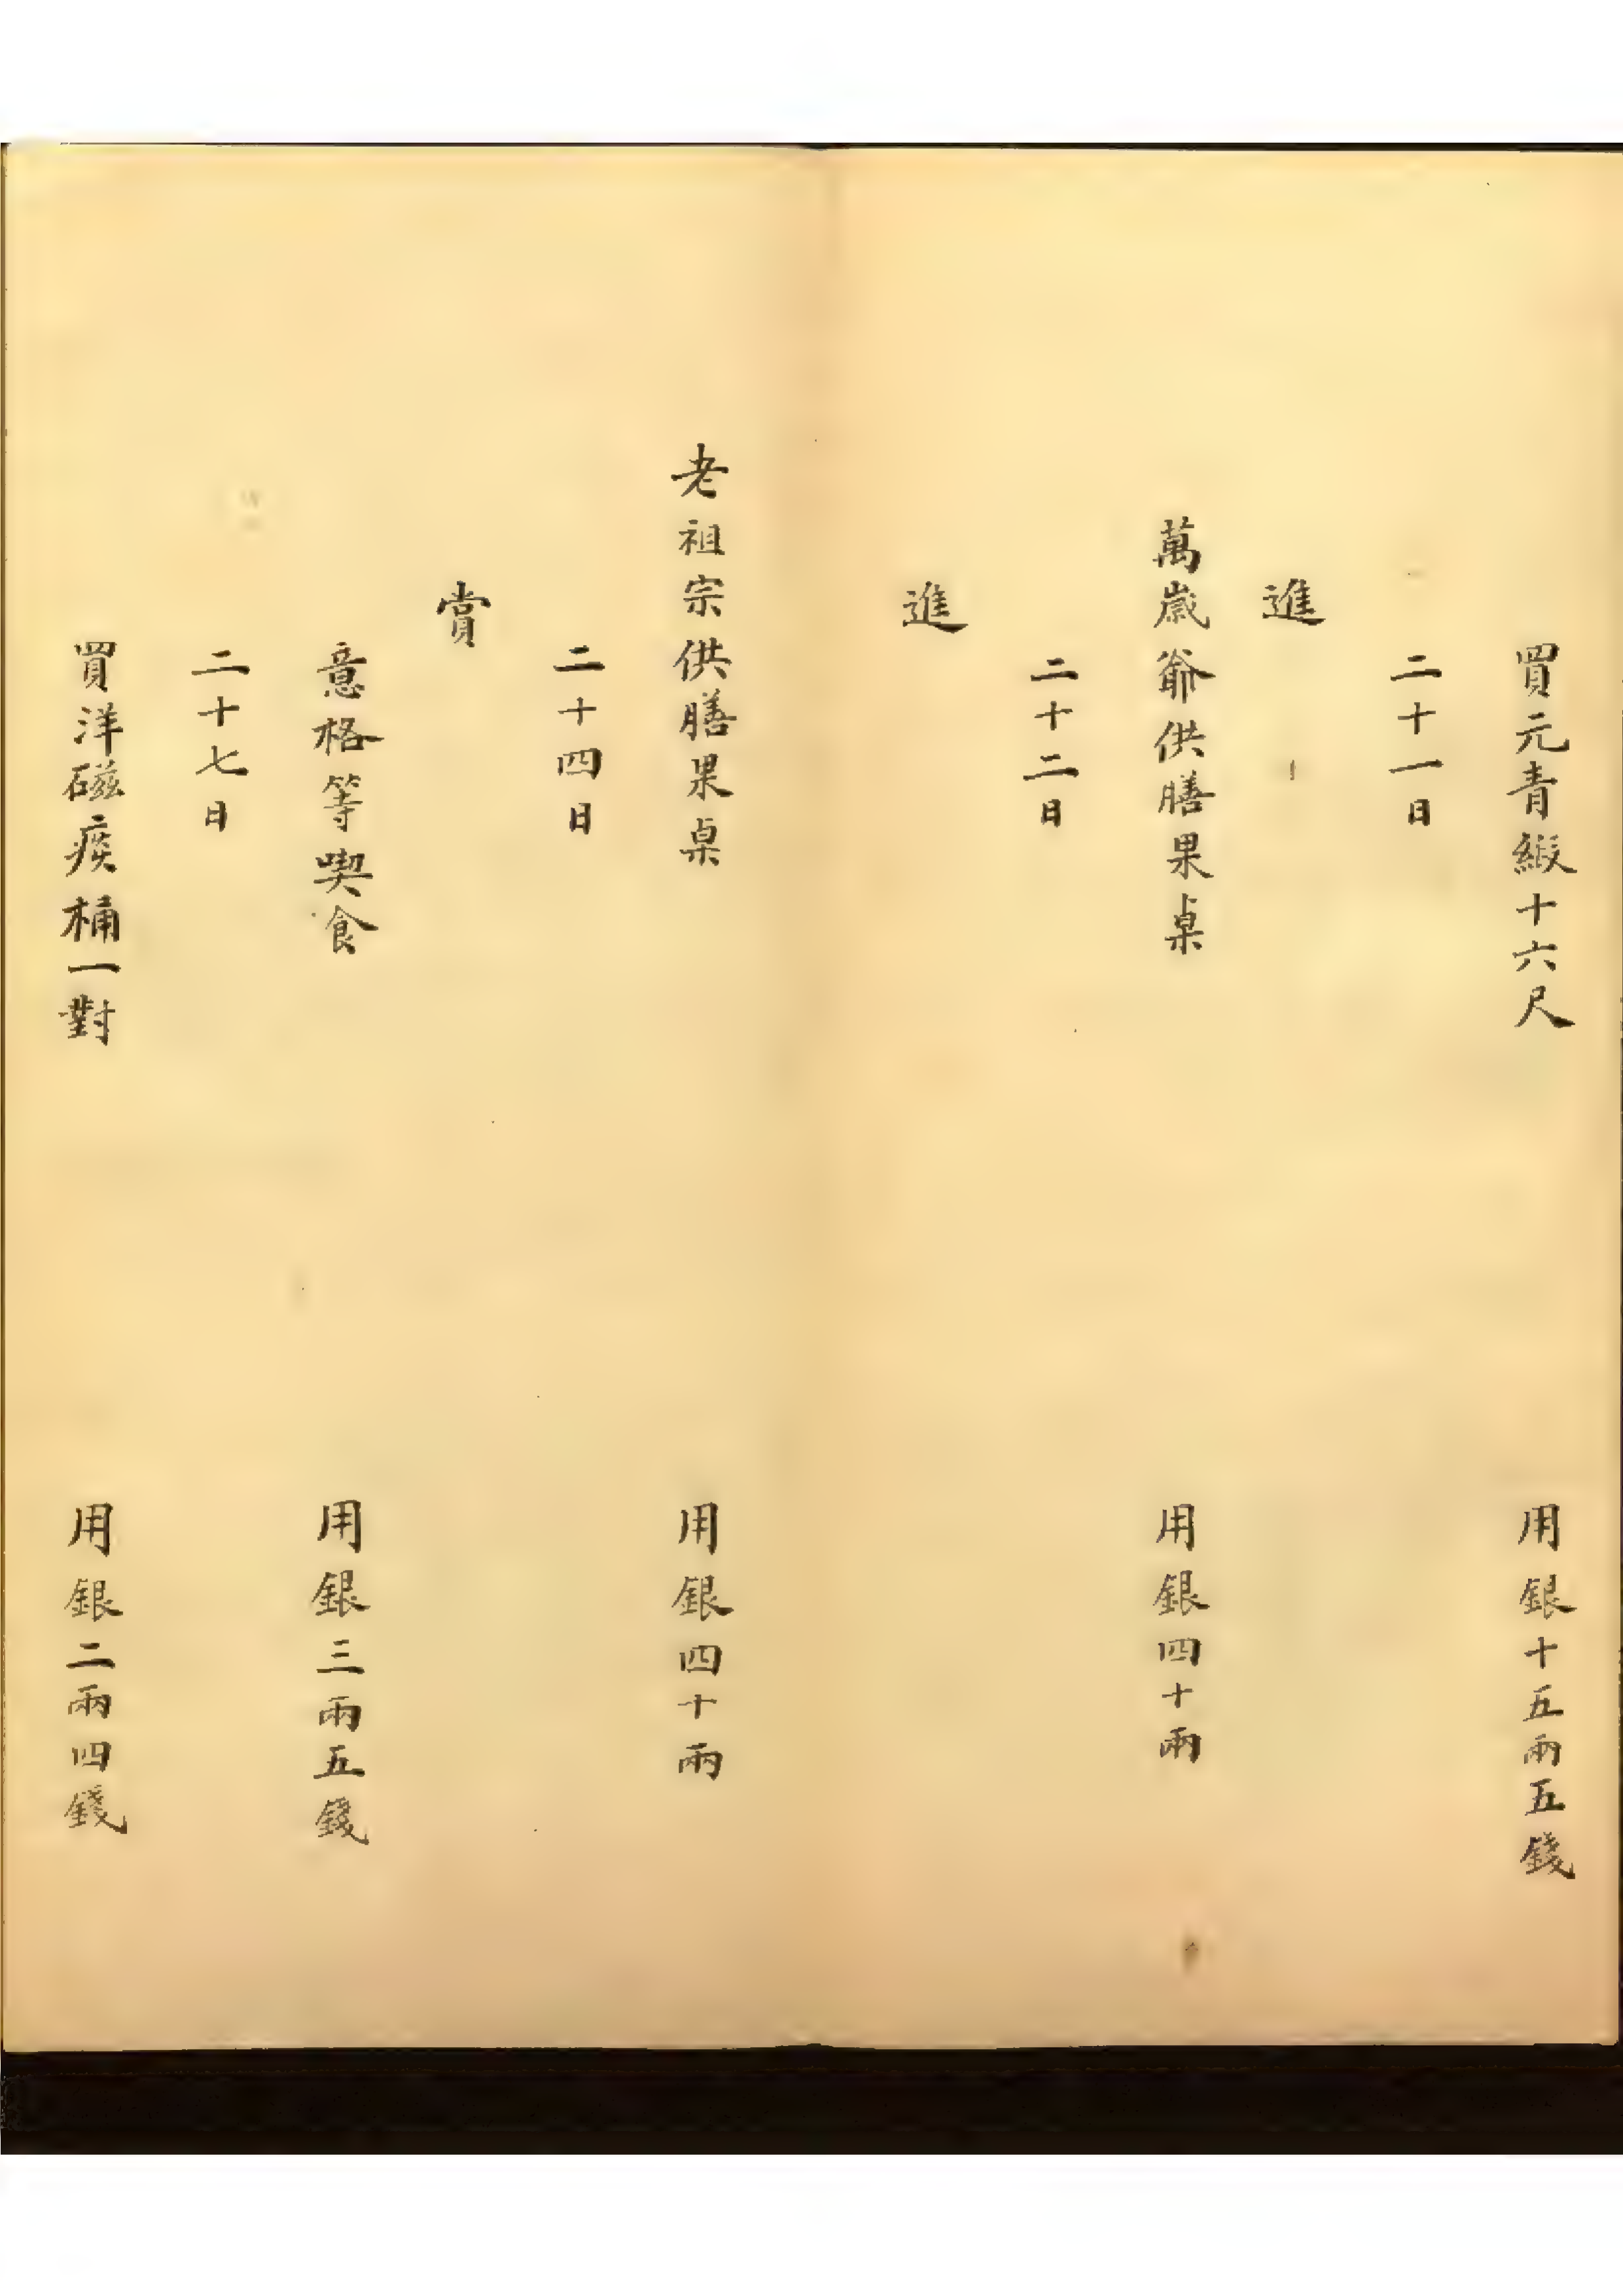 買元青緞十六尺 用銀十五兩五錢
二十一日
進
萬歲爺供膳果桌 用銀四十兩
二十二日
進
老祖宗供膳果桌 用銀四十兩
二十四日
賞
意格等喫食 用銀三兩五錢
二十七日
買洋磁痰桶一對 用銀二兩四錢